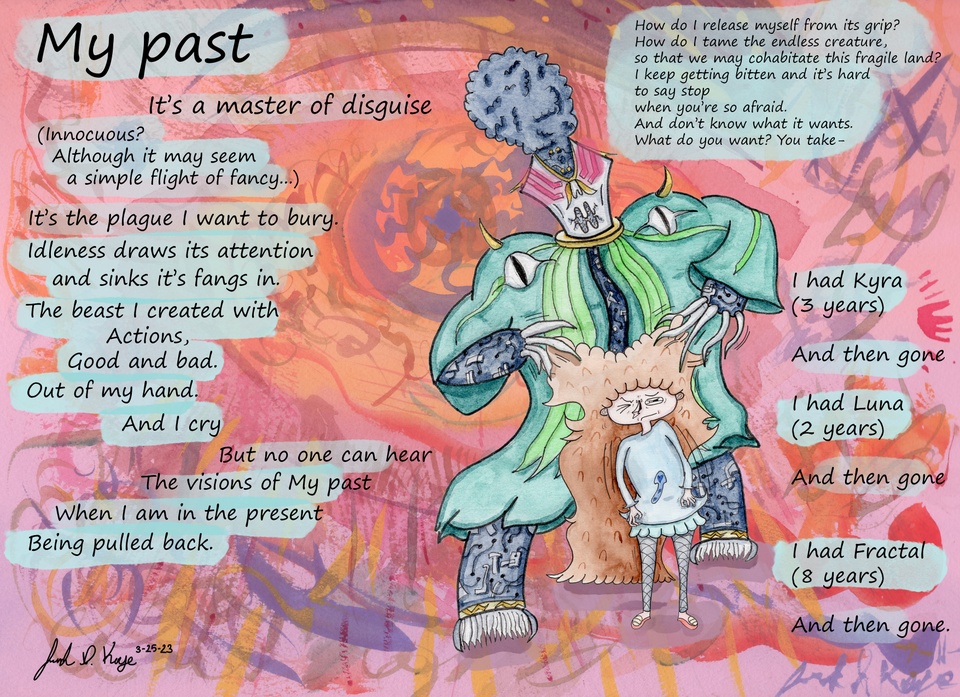 My past
It's a master of disguise
(Innocuous?
Although it may seem
a simple flight of fancy...)
It's the plague I want to bury.
Idleness draws its attention
and sinks it's fangs in.
The beast I created with
Actions,
Good and bad.
Out of my hand.
And I cry
But no one can hear
The visions of My past
When I am in the present
Being pulled back.
How do I release myself from its grip?
How do I tame the endless creature,
so that we may cohabitate this fragile land?
I keep getting bitten and it's hard
to say stop
when you're so afraid.
And don't know what it wants.
What do you want? You take-
I had Kyra
(3 years)
And then gone
I had Luna
(2 years)
And then gone
I had Fractal
(8 years)
And then gone.
3-25-23